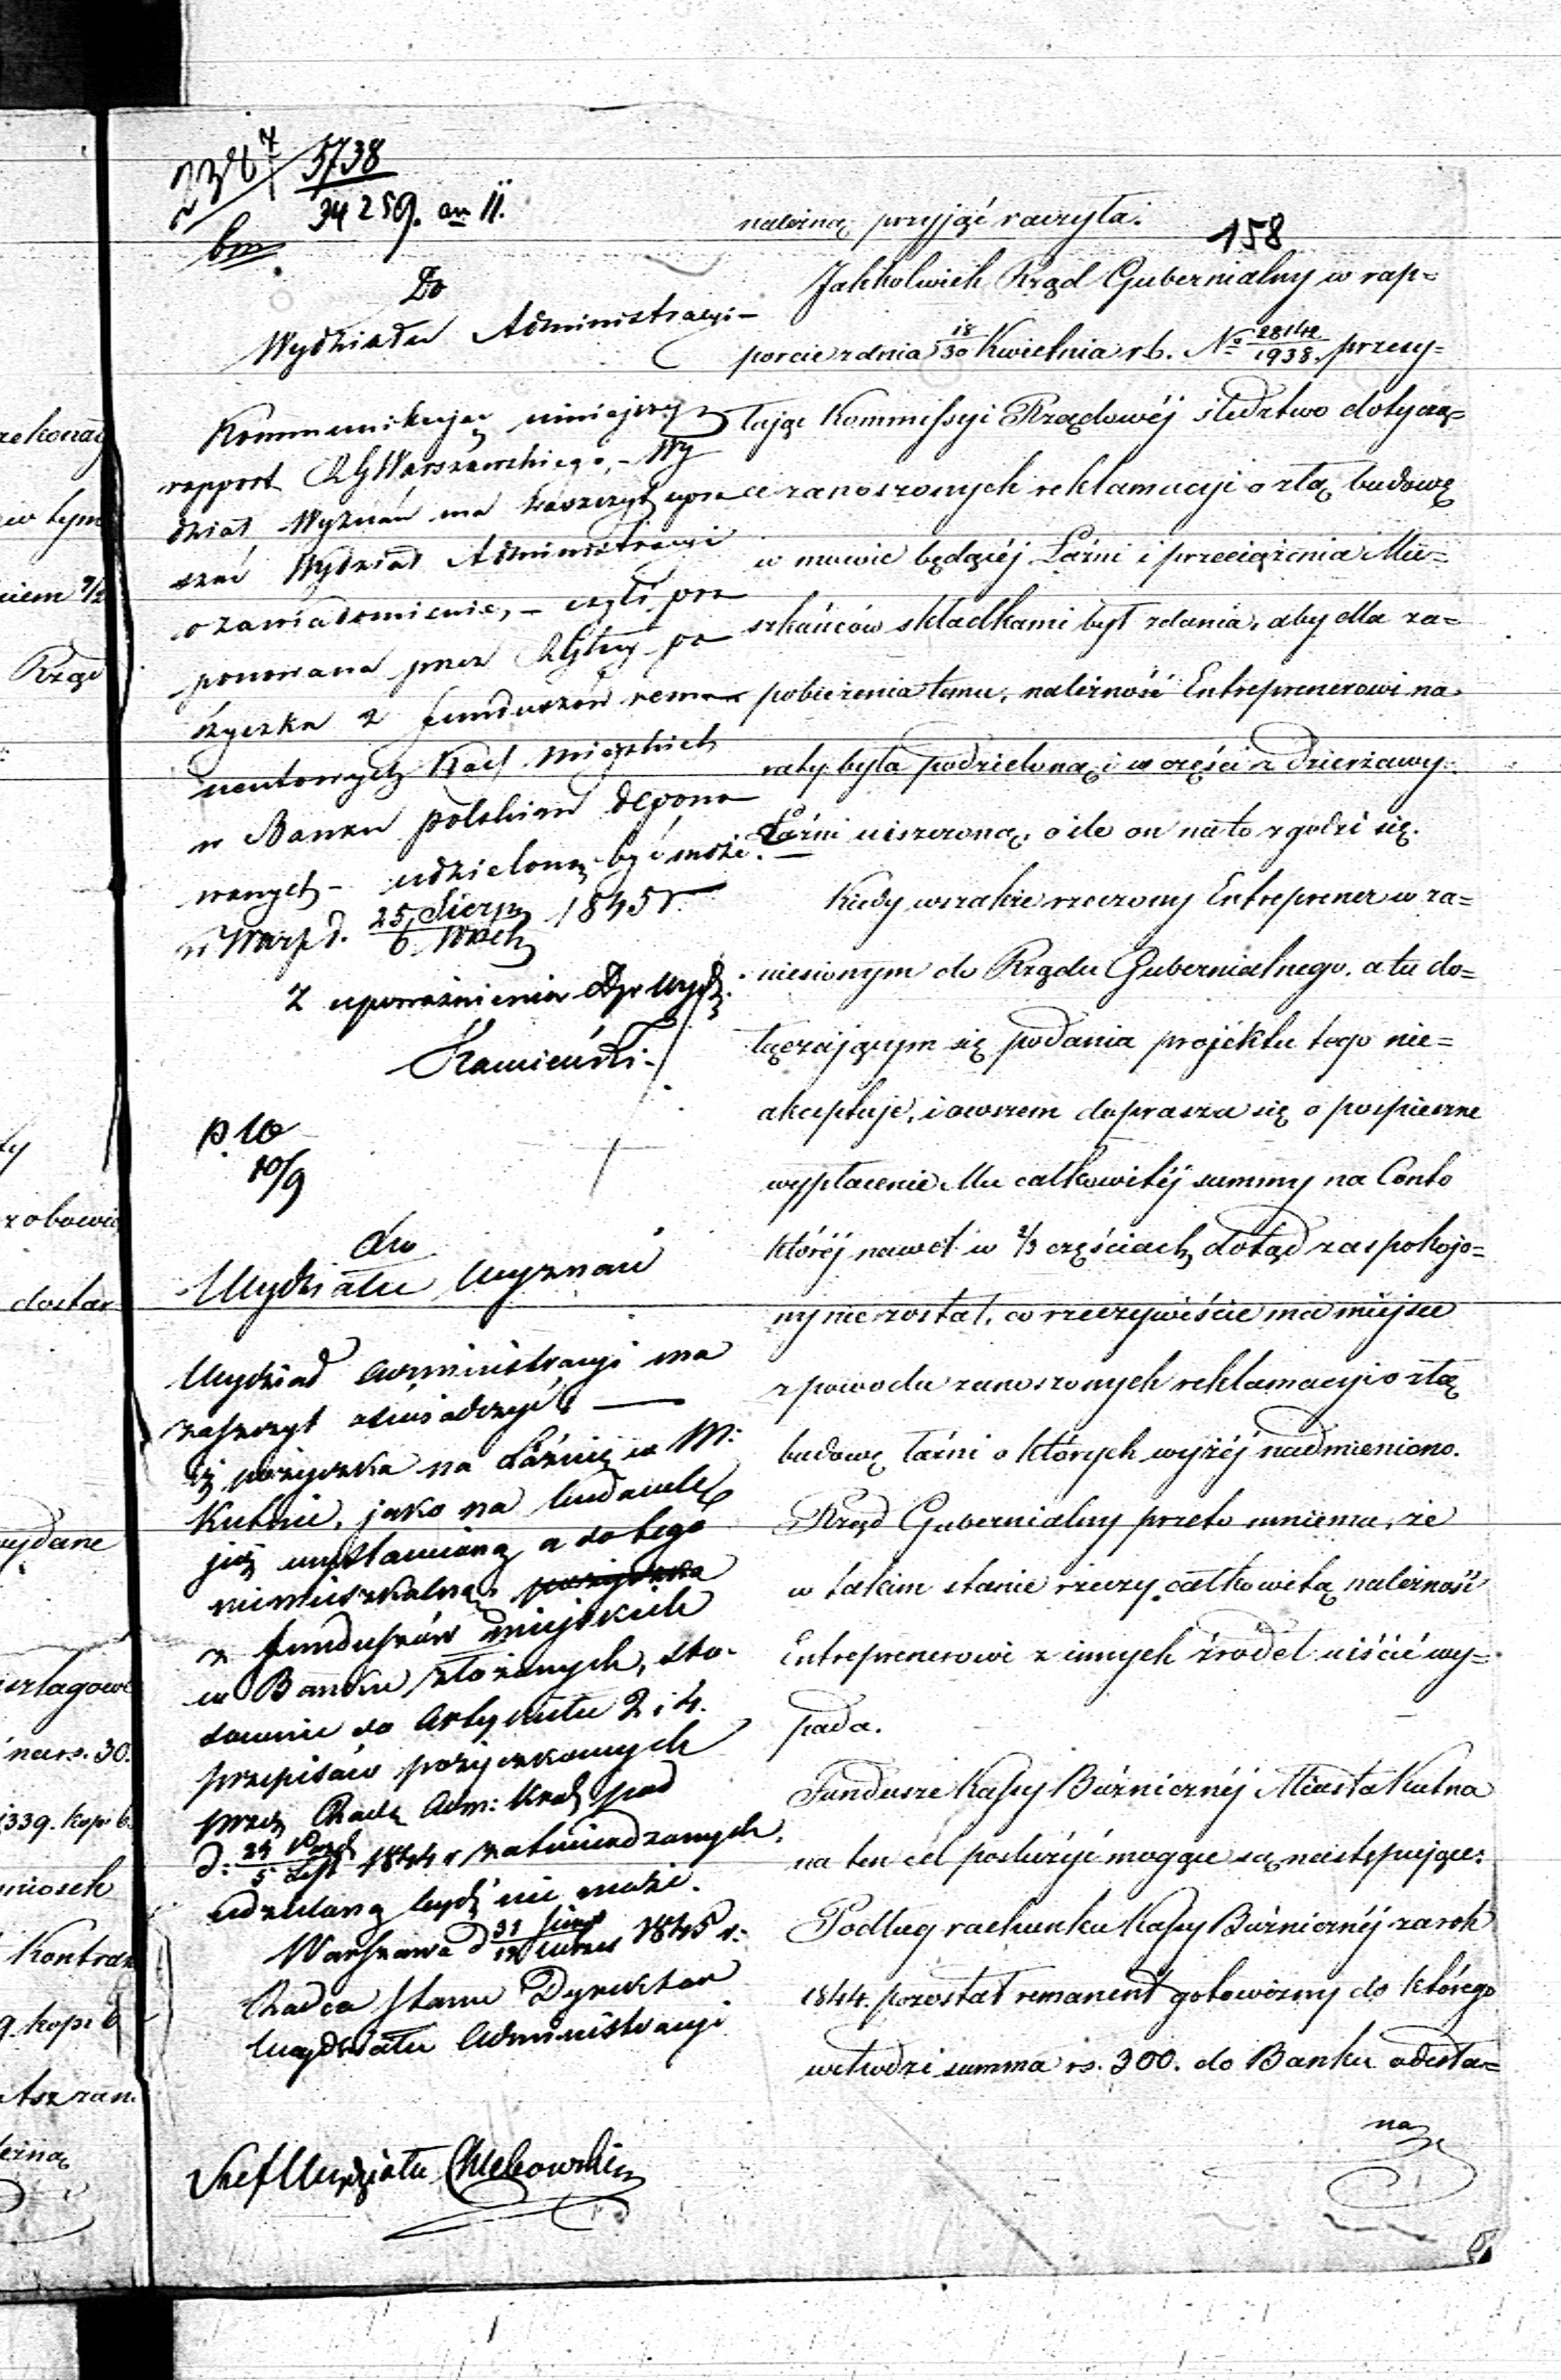 2387 5738
34259. an II.
bm
Do
Wydziału Administracyi
Kommunikując niniejszy
rapport RGWarszawskiego, Wy
dział Wyznań ma zaszczyt upra
szać Wydział Administracyi
o zawiadomienie, – czyli pro
ponowana przez RGlny po
życzka z funduszów rema
nentowych Kass Miejskich
w Banku polskim depono
wanych – udzieloną być może.
w Warsz d. 25 Sierp / 6 Wrześ 1845 r.
Z upoważnienia Dyr Wydz.
Kamieński
p. 10
10/9
do
Wydziału Wyznań
Wydział Administracyi ma
zaszczyt oświadczyć, —
iż pożyczka na Łaźnię w M:
Kutnie, jako na budowlę
już wystawioną a do tego
niemieszkalną, pożyczka
z funduszów miejskich
w Banku złożonych, sto-
sownie do Artykułu 2 i 4.
przepisów pożyczkowych
przez Radę Adm: Król: pod
d: 24 Paźd / 5 List 1844 r zatwierdzonych,
udzieloną bydź nie może.
Warszawa d 31 Sierp / 12 Wrześ 1845 r.
Radca Stanu Dyrektor
Wydziału Administracyi
Szef Wydziału
158
należną przyjąć raczyła.
Jakkolwiek Rząd Gubernialny w rap=
porcie z dnia 18/30 Kwietnia r.b. No 28142/1938. przesy=
łając Kommissyi Rządowéj śledztwo dotyczą=
ce zanoszonych reklamacyi o złą budowę
w mowie będącéj Łaźni i przeciążenia Mie=
szkańców składkami był zdania, aby dla za=
pobieżenia temu, należność Entreprenerowi na
raty była podzieloną i w części z dzierżawy
Łaźni uiszczoną, o ile on na to zgodzi się.
Kiedy wszakże rzeczony Entreprener w za=
niesionym do Rządu Gubernialnego, a tu do=
łączającym się podania projektu tego nie=
akceptuje, i owszem doprasza się o pospieszne
wypłacenie Mu całkowitéj summy na Conto
któréj nawet w 2/3 częściach dotąd zaspokojo=
ny nie został, co rzeczywiście ma miejsce
z powodu zanoszonych reklamacyi o złą
budowę łaźni o których wyżéj nadmieniono.
Rząd Gubernialny przeto mniema, że
w takim stanie rzeczy całkowitą należność
Entreprenerowi z innych źródeł uiścić wy=
pada.
Fundusze Kassy Bużnicznéj Miasta Kutna
na ten cel posłużyć mogące są następujące:
Podług rachunku Kassy Bużnicznéj za rok
1844. pozostał remanent gotowizny do którego
wchodzi summa rs. 300. do Banku odesła=
na